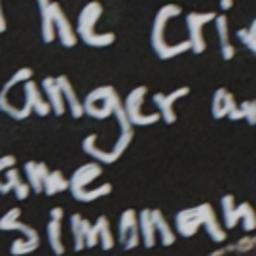 he cri
anger an
ame
simonan